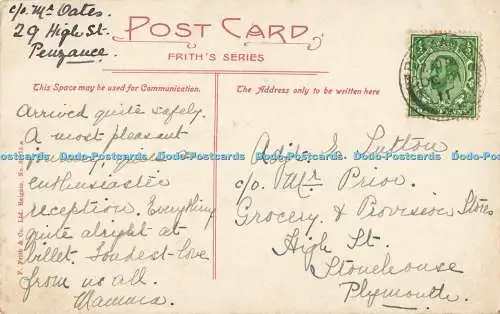 c/o. Mrs Oates.
29 High St.
Penzance.
POST CARD
FRITH'S SERIES
This Space may be used for Communication.
The Address only to be written here
Arrived quite safely.
A most pleasant
enthusiastic
reception. Everything
quite alright at
billet. Fondest love
from us all.
Mamma
Sutton
c/o. Mr Prior.
Grocery & Provision Stores
High St.
Stonehouse
Plymouth.
F. Frith & Co., Ltd. Reigate.
Dodo-Postcards Dodo-Postcards Dodo-Postcards Dodo-Postcards Dodo-Postcards Dodo-Postcards